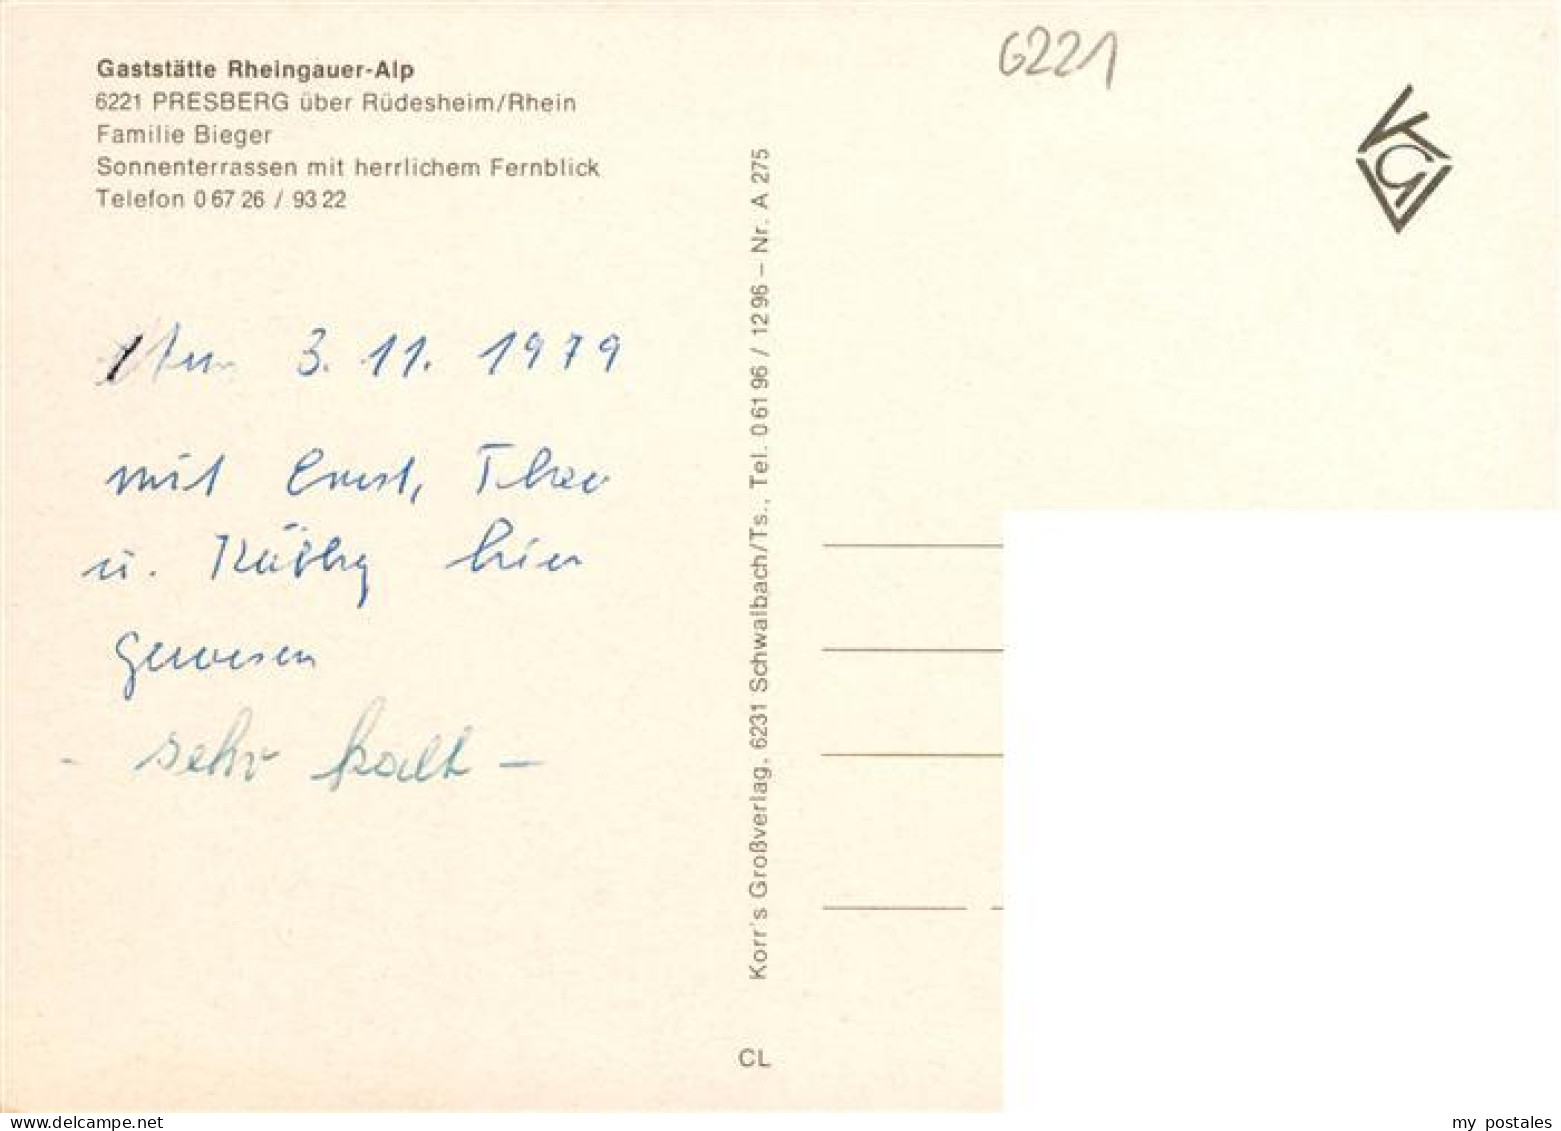 Gaststätte Rheingauer-Alp
6221 PRESBERG über Rüdesheim/Rhein
Familie Bieger
Sonnenterrassen mit herrlichem Fernblick
Telefon 0 67 26 / 93 22
Am 3. 11. 1979
mit Ernst, Theo
u. Käthy hier
gewesen
- sehr kalt -
Korr's Großverlag, 6231 Schwalbach/Ts., Tel. 0 61 96 / 12 96 – Nr. A 275
CL
6221
KG
my postales